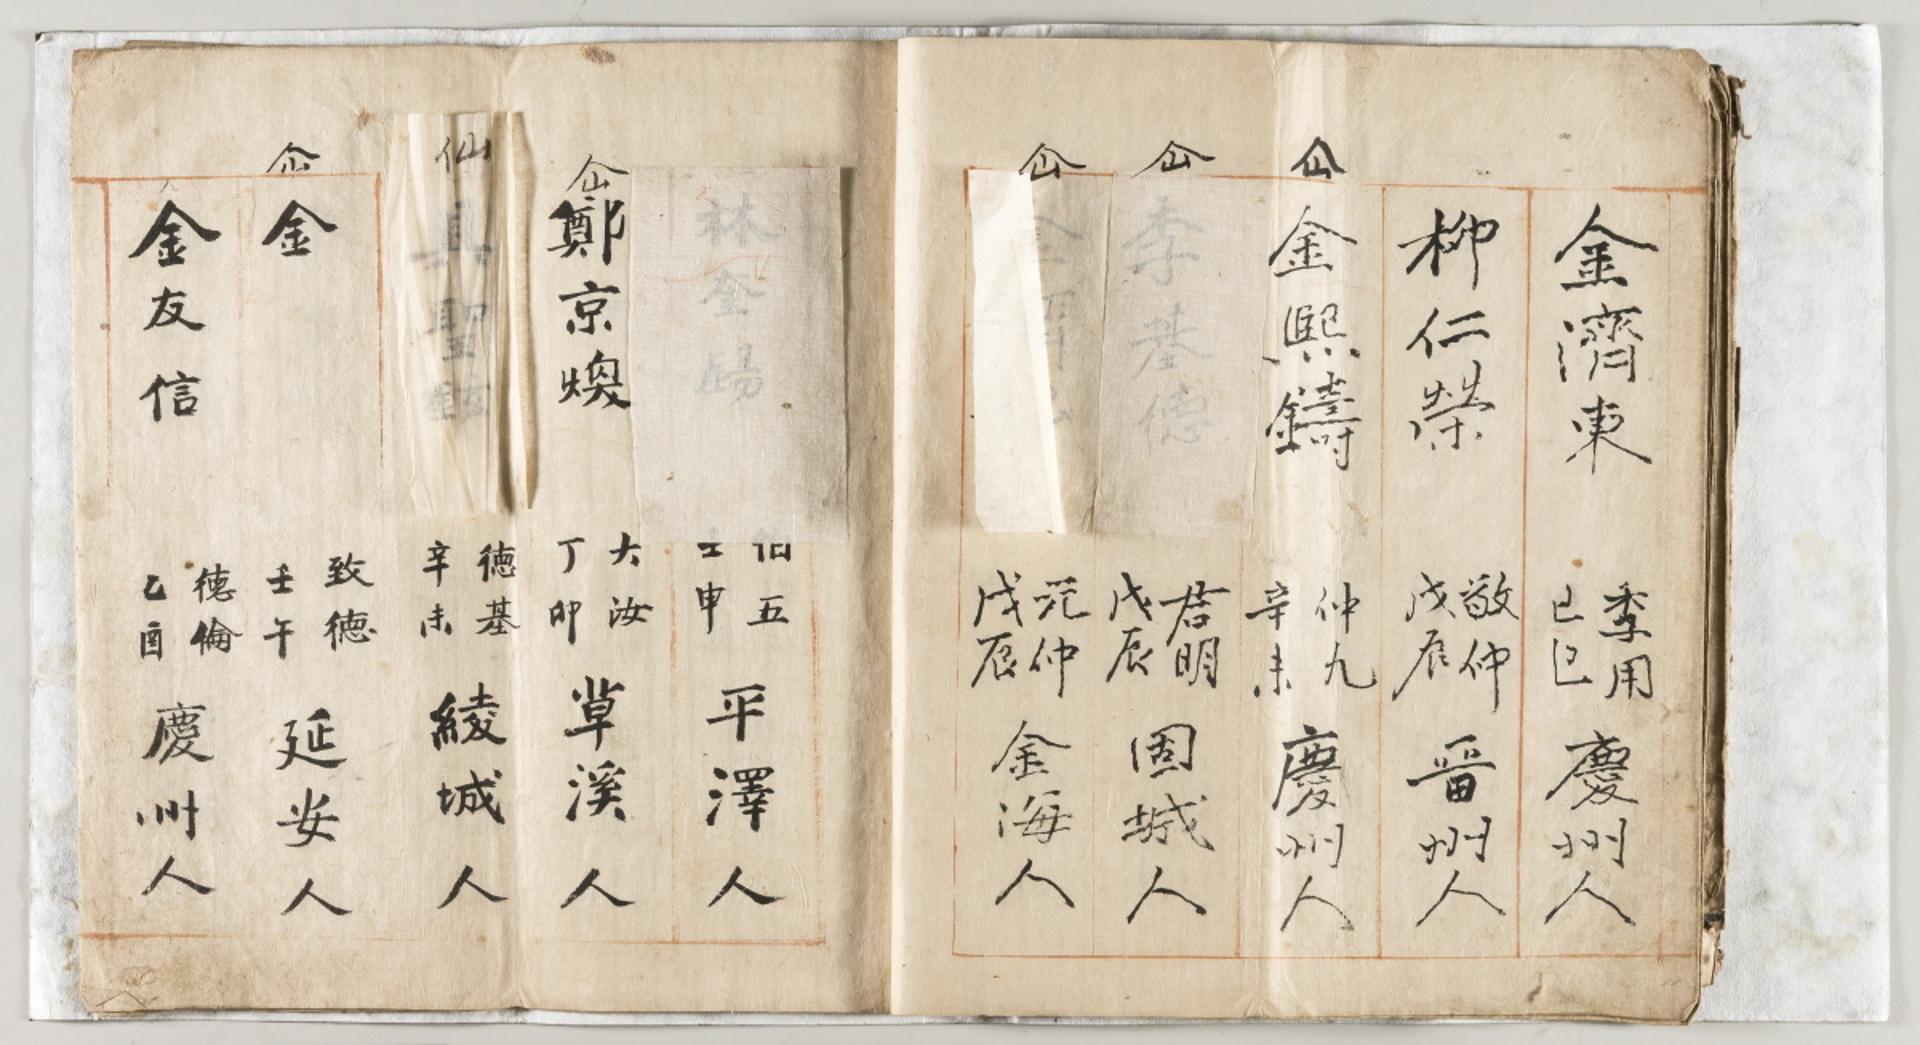 金濟東 季用 己巳 慶州人
柳仁榮 敬仲 戊辰 晉州人
仚 金熙鑄 仲九 辛未 慶州人
仚 李基德 君明 戊辰 固城人
仚 元仲 戊辰 金海人
林 伯五 壬申 平澤人
仚 鄭京煥 大汝 丁卯 草溪人
仙 具聖 德基 辛未 綾城人
仚 金 致德 壬午 延安人
金友信 德倫 乙酉 慶州人